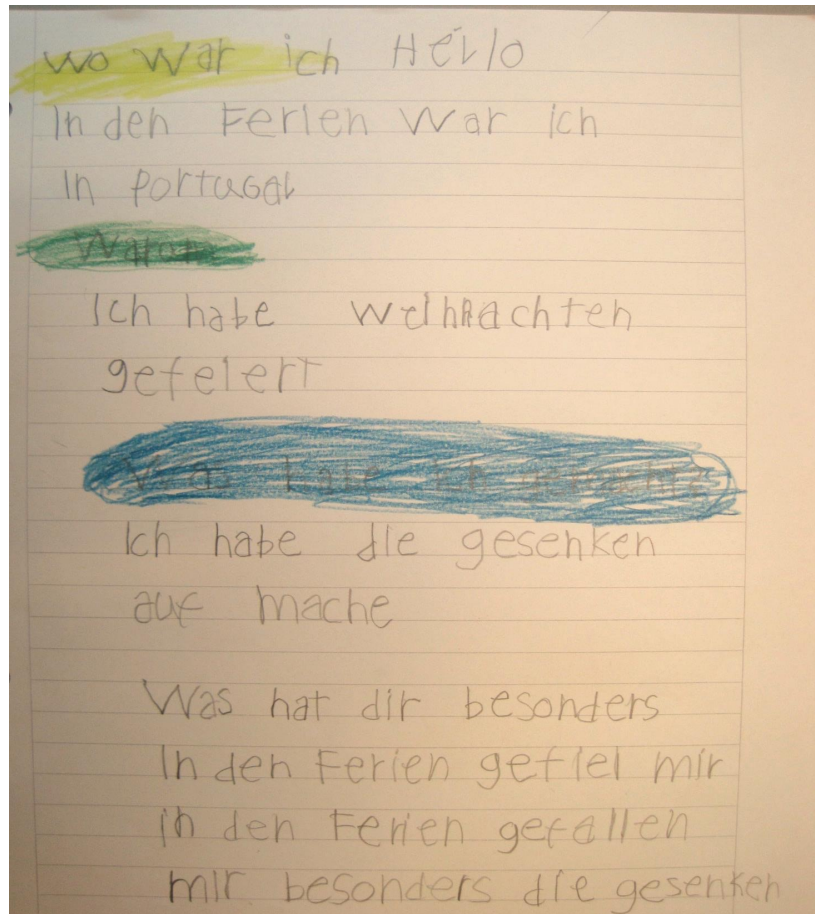 wo war ich Hello
In den Ferien war ich
In Portugal
Warum
Ich habe Weihnachten
gefeiert
Was habe ich gemacht?
Ich habe die gesenken
auf mache
Was hat dir besonders
In den Ferien gefiel mir
in den Ferien gefallen
mir besonders die gesenken